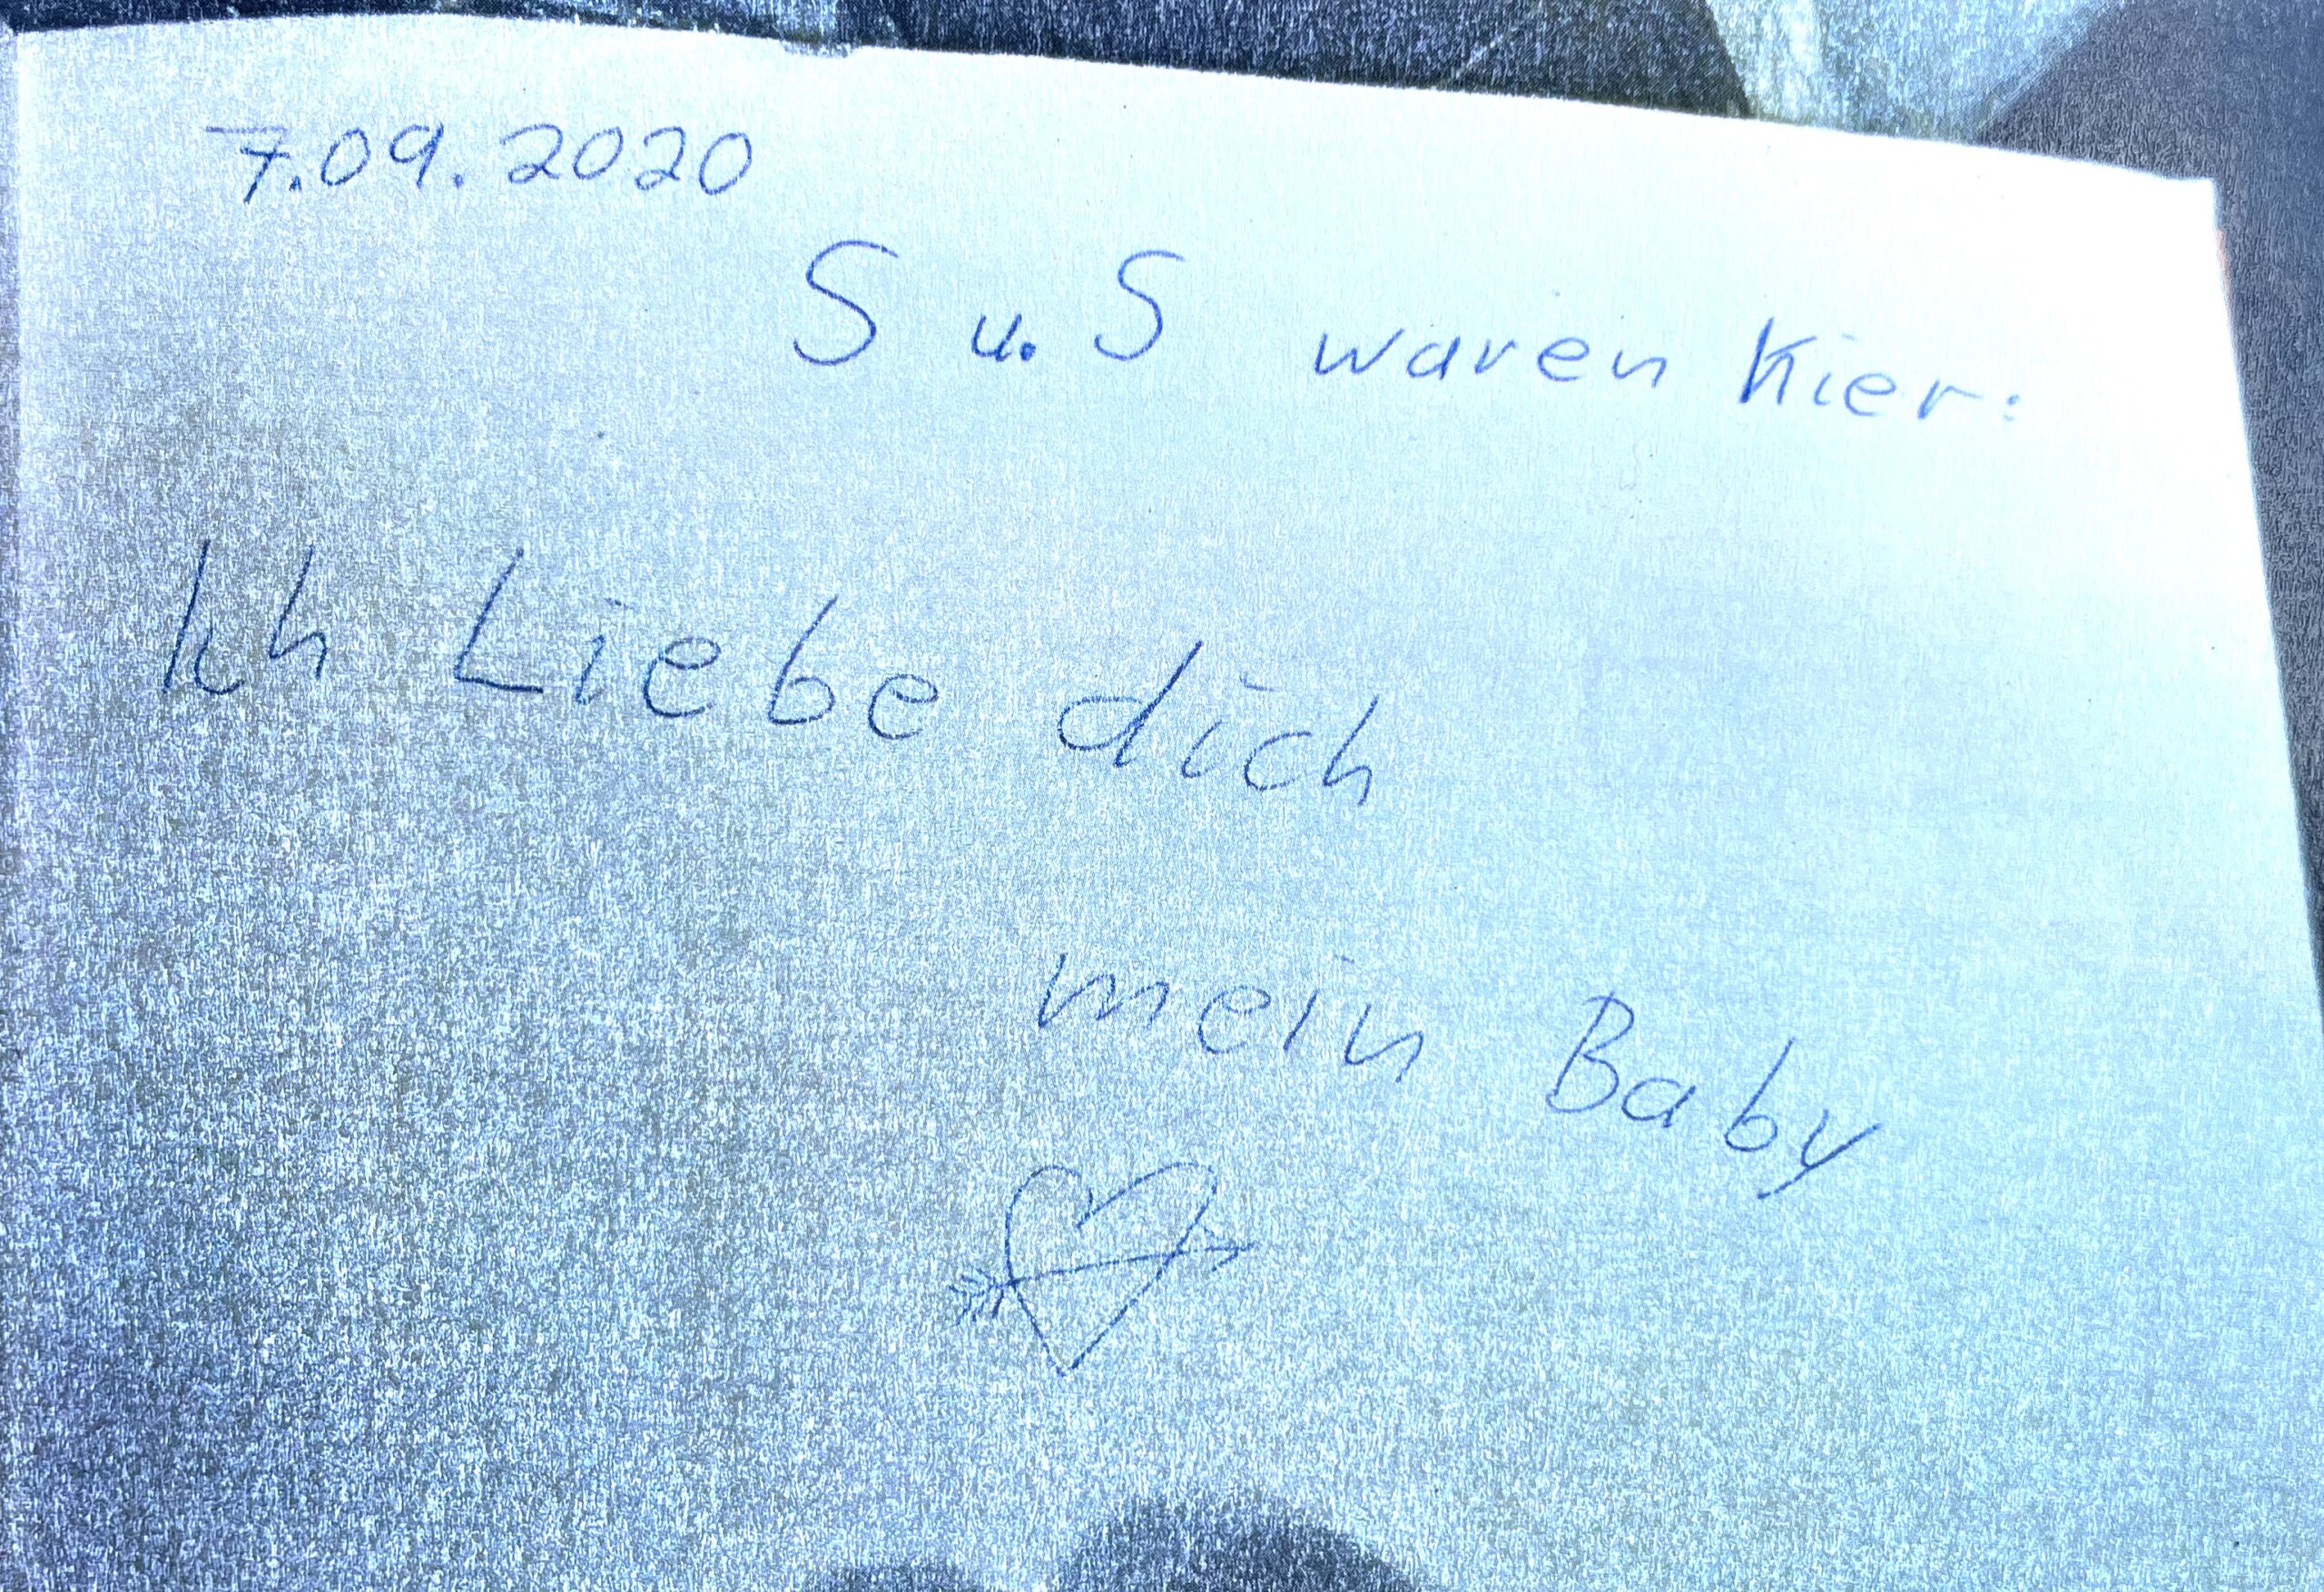 7.09.2020
S u. S waren hier:
Ich Liebe dich
mein Baby